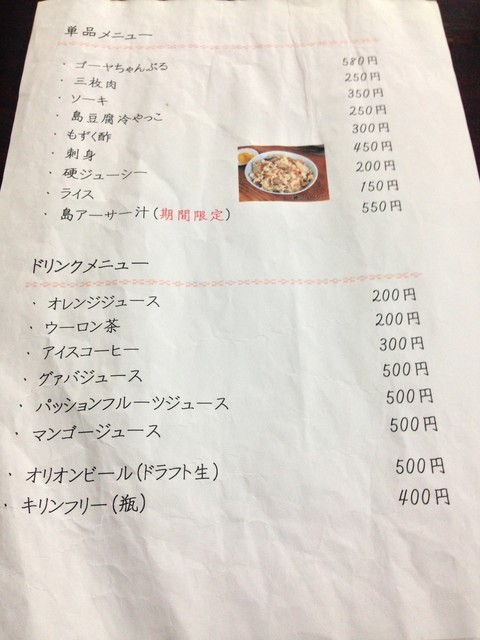 単品メニュー
・ゴーヤちゃんぷる 580円
・三枚肉 250円
・ソーキ 350円
・島豆腐冷やっこ 250円
・もずく酢 300円
・刺身 450円
・硬ジューシー 200円
・ライス 150円
・島アーサー汁(期間限定) 550円
ドリンクメニュー
・オレンジジュース 200円
・ウーロン茶 200円
・アイスコーヒー 300円
・グァバジュース 500円
・パッションフルーツジュース 500円
・マンゴージュース 500円
・オリオンビール(ドラフト生) 500円
・キリンフリー(瓶) 400円